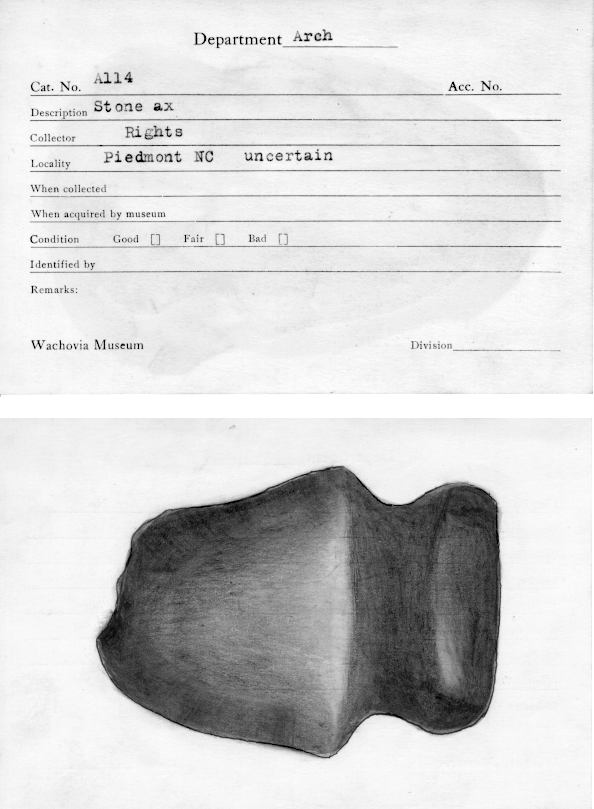 Department Arch
Cat. No. A114 Acc. No.
Description Stone ax
Collector Rights
Locality Piedmont NC uncertain
When collected
When acquired by museum
Condition Good [] Fair [] Bad []
Identified by
Remarks:
Wachovia Museum Division